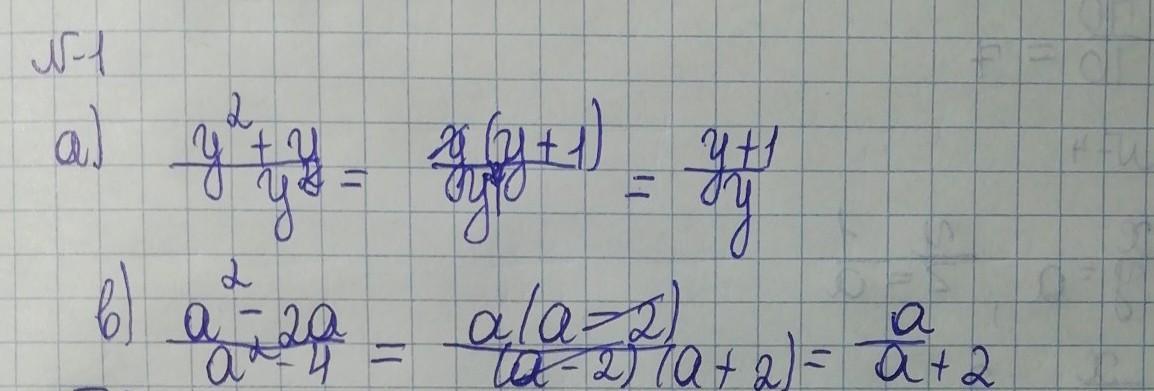 N-1
a) (y² + y)/y² = y(y+1)/y² = (y+1)/y
в) (a² - 2a)/(a² - 4) = a(a-2)/((a-2)(a+2)) = a/(a+2)